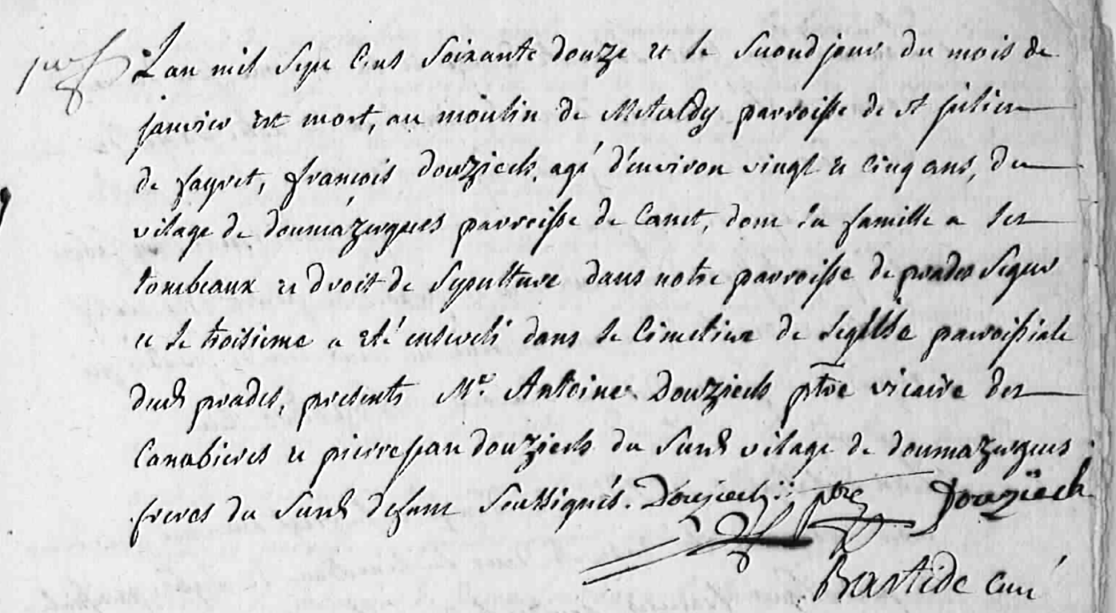 L'an mil sept cens soixante douze et le second jour du mois de
janvier est mort, au moulin de Metaldy parroisse de st julien
de fayret, françois douziech, agé d'environ vingt et cinq ans, du
vilage de doumazergues parroisse de Canet, dont la famille a ses
tombeaux et droit de sepulture dans notre parroisse de prades segur
et le troisieme a eté enseveli dans le cimetiere de leglise parroissiale
dud prades, presents Mr Antoine Douziech ptre vicaire des
Canabieres et pierre jean douziech du susd vilage de doumazergues
freres du susd defunt soussignés. Douziech ptre Douziech
Bastide curé